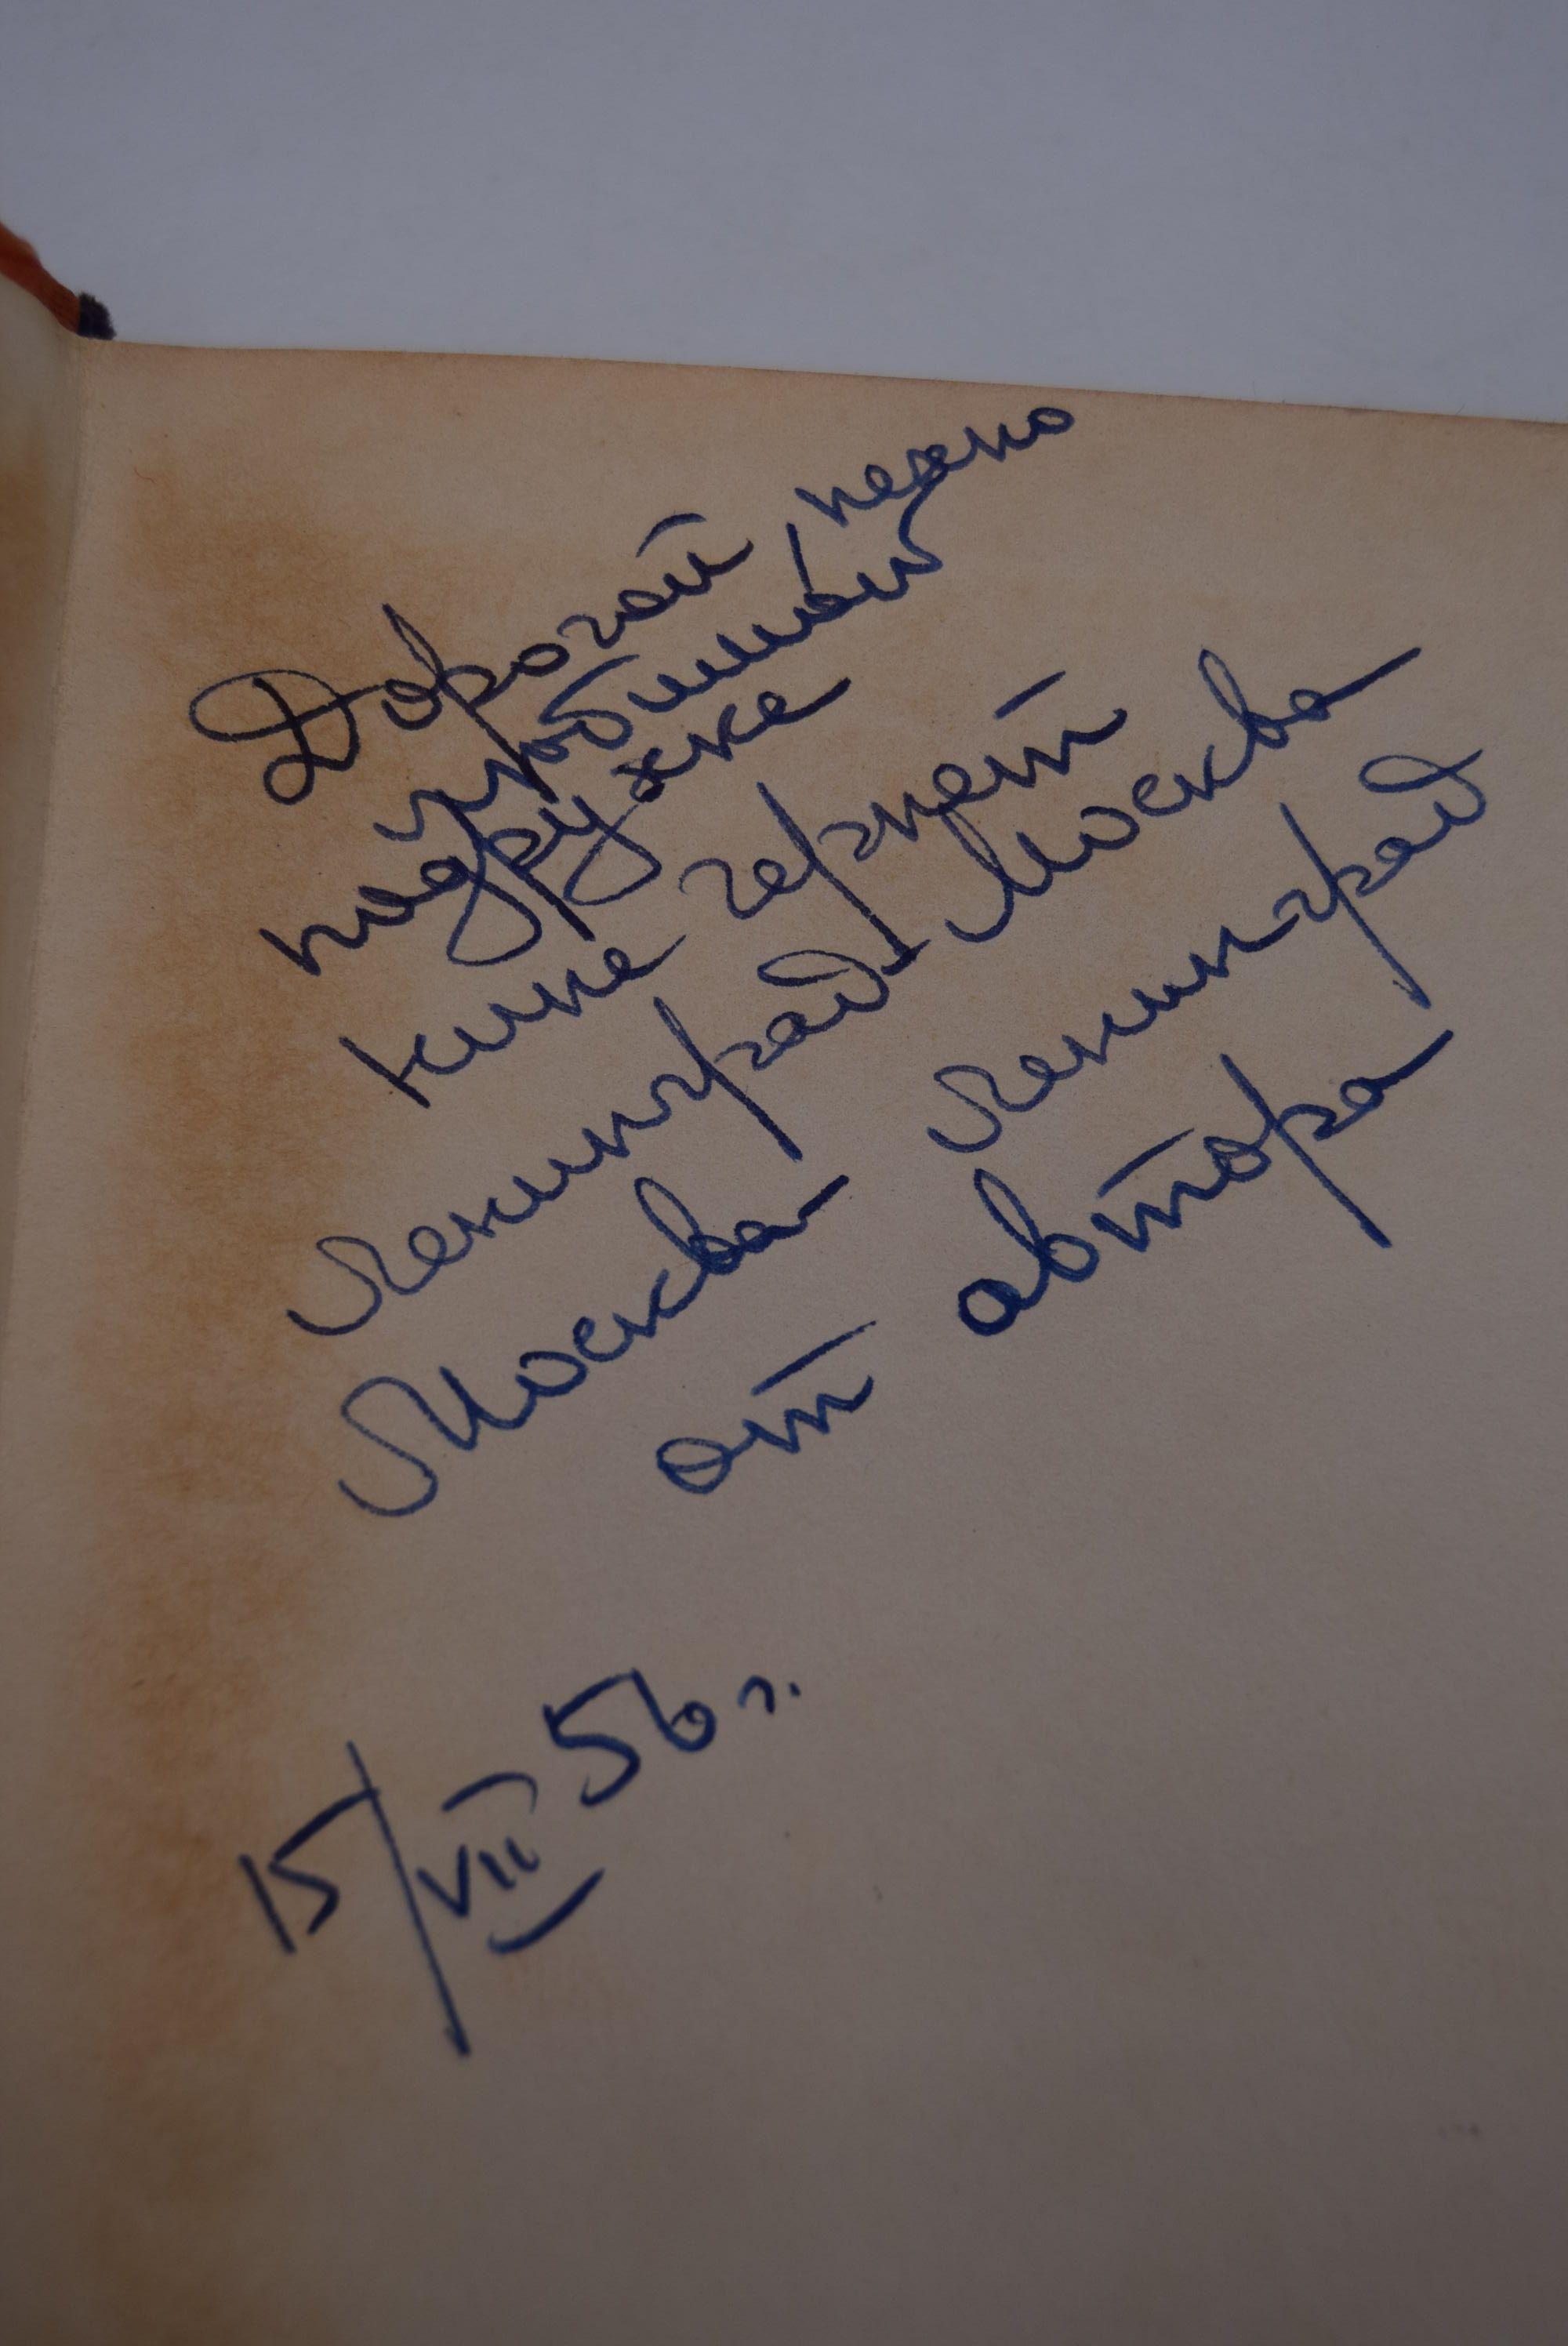 Дорогой, нежно
любимой
подружке
Кине Гернет
Ленинград-Москва
Москва Ленинград
от автора
15/VII 56 г.